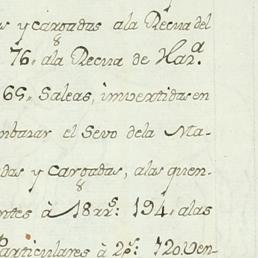 s y cargadas ala Recua del
8
76„ ala Recua de Har.ª
69„ Saleas, imvertidas en
mbarar el Sevo dela Ma-
das y cargadas, alas quen-
8
ntes à 18 rr.s: 194„ alas
Particulares à 2p.s: 720 ven-